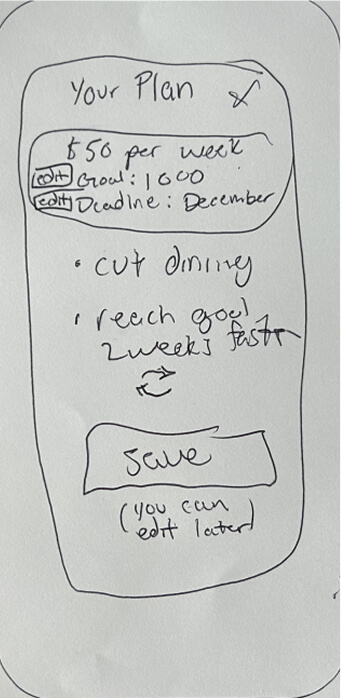 Your Plan
$50 per week
edit Goal: 1000
edit Deadline: December
• cut dining
• reach goal
2 weeks faster
save
(you can
edit later)